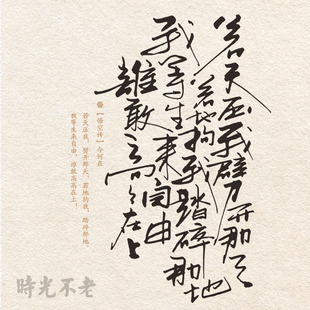 若天压我劈开那天
若地拘我踏碎那地
我等生来自由
誰敢高高在上
【悟空传】今何在
若天压我，劈开那天，若地拘我，踏碎那地，
我等生来自由，谁敢高高在上！
時光不老